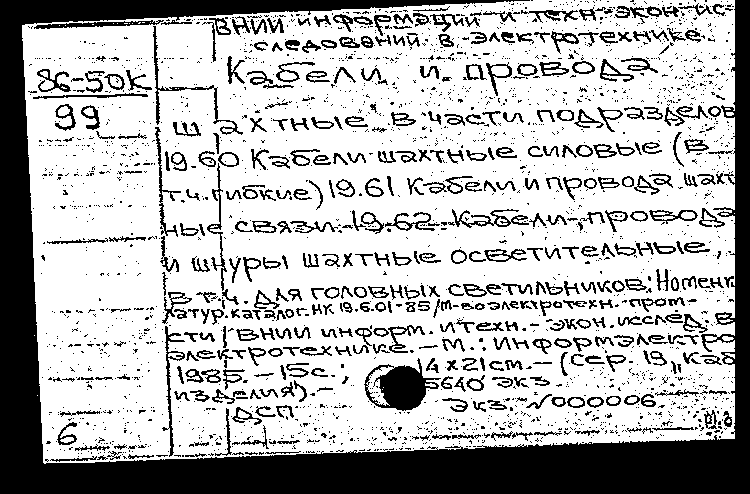 ВНИИ информации и техн.-экон. ис-
следований в электротехнике.
86-50К
Кабели и провода
99
шахтные в части подразделов
19.60 Кабели шахтные силовые (в
т.ч. гибкие) 19.61 Кабели и провода шахт
ные связи. 19.62 Кабели, провода
и шнуры шахтные осветительные,
в т.ч. для головных светильников: Номенк
латур. каталог. НК 19.6.01-85/М-во электротехн. пром-
сти ВНИИ информ. и техн.-экон. исслед. в
электротехнике. – М.: Информэлектро
1985. – 15с.; 14х21см. – (сер. 19 „Каб
изделия"). – 5640 экз.
ДСП Экз. №000006
6